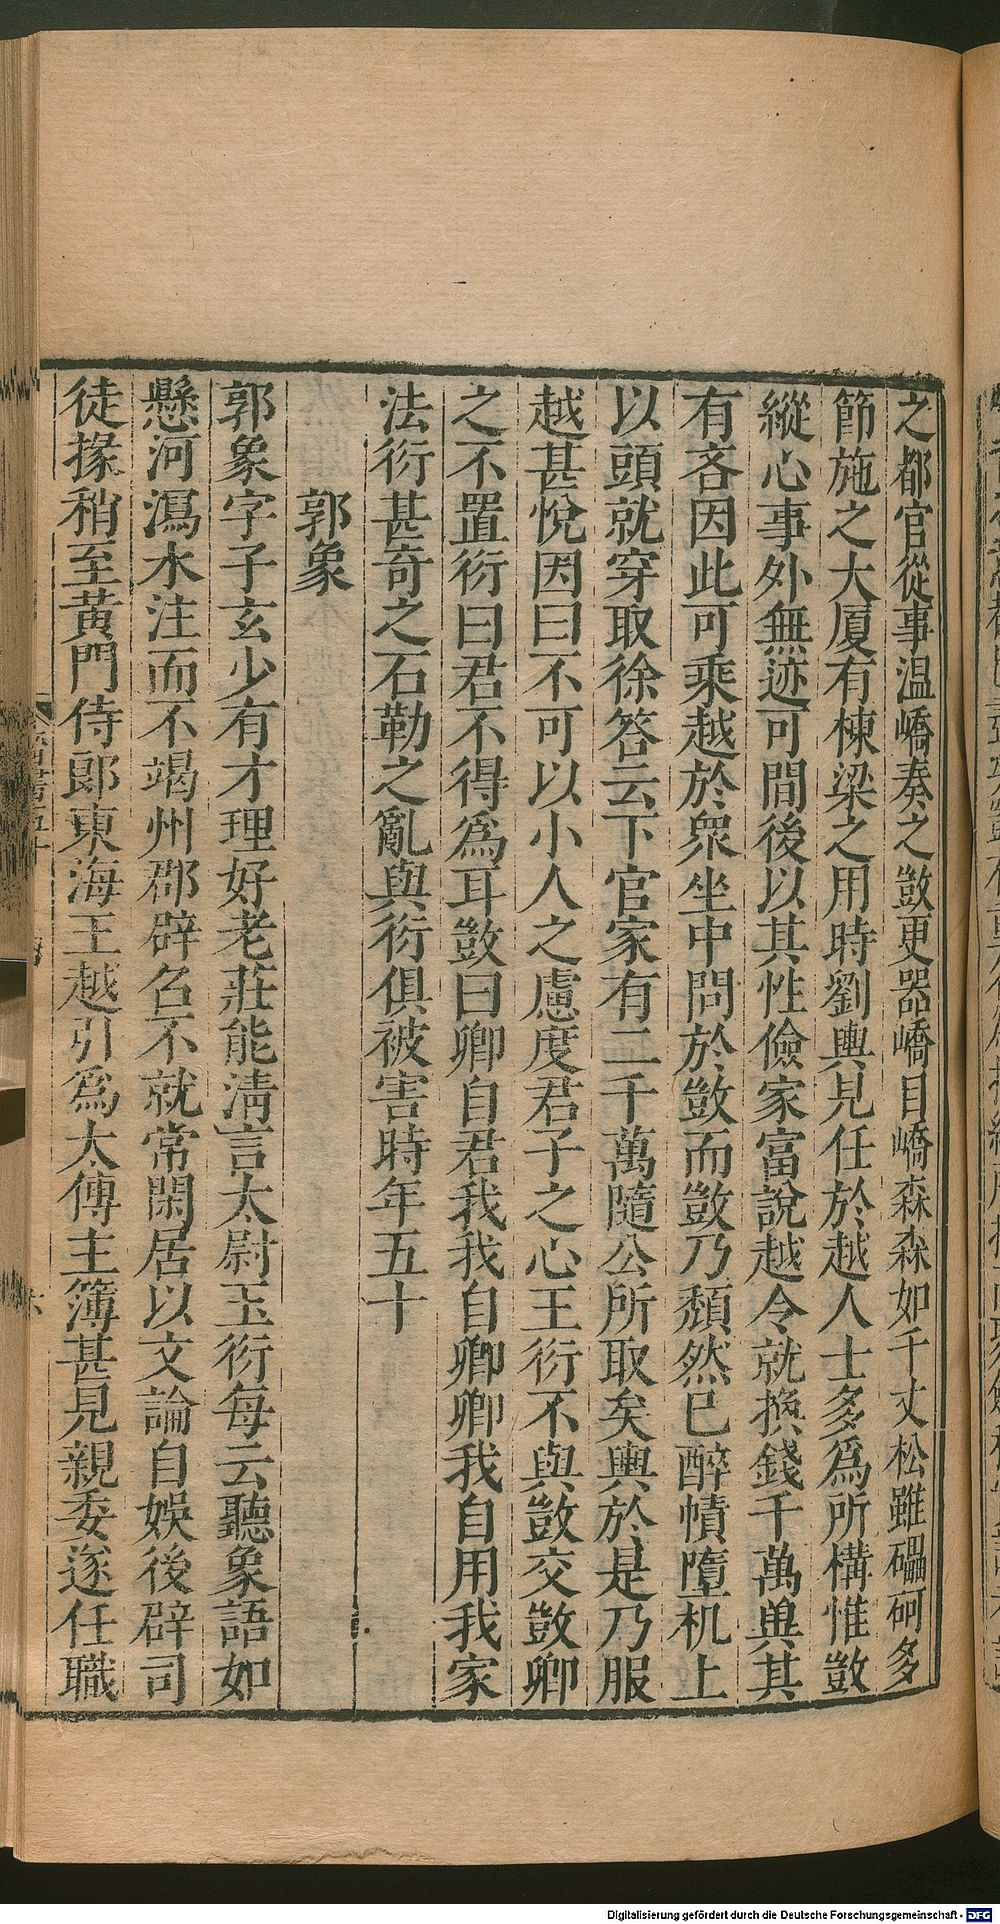 之都官從事温嶠奏之敳更器嶠目嶠森森如千丈松雖礧砢多
節施之大厦有棟梁之用時劉輿見任於越人士多爲所構惟敳
縱心事外無迹可間後以其性儉家富說越令就換錢千萬兾其
有吝因此可乘越於衆坐中問於敳而敳乃頹然已醉幘墮机上
以頭就穿取徐答云下官家有二千萬隨公所取矣輿於是乃服
越甚悅因曰不可以小人之慮度君子之心王衍不與敳交敳卿
之不置衍曰君不得爲耳敳曰卿自君我我自卿卿我自用我家
法衍甚奇之石勒之亂與衍俱被害時年五十
郭象
郭象字子玄少有才理好老莊能淸言太尉王衍每云聽象語如
懸河瀉水注而不竭州郡辟召不就常閑居以文論自娛後辟司
徒掾稍至黄門侍郞東海王越引爲太傅主簿甚見親委遂任職
Digitalisierung gefördert durch die Deutsche Forschungsgemeinschaft - DFG